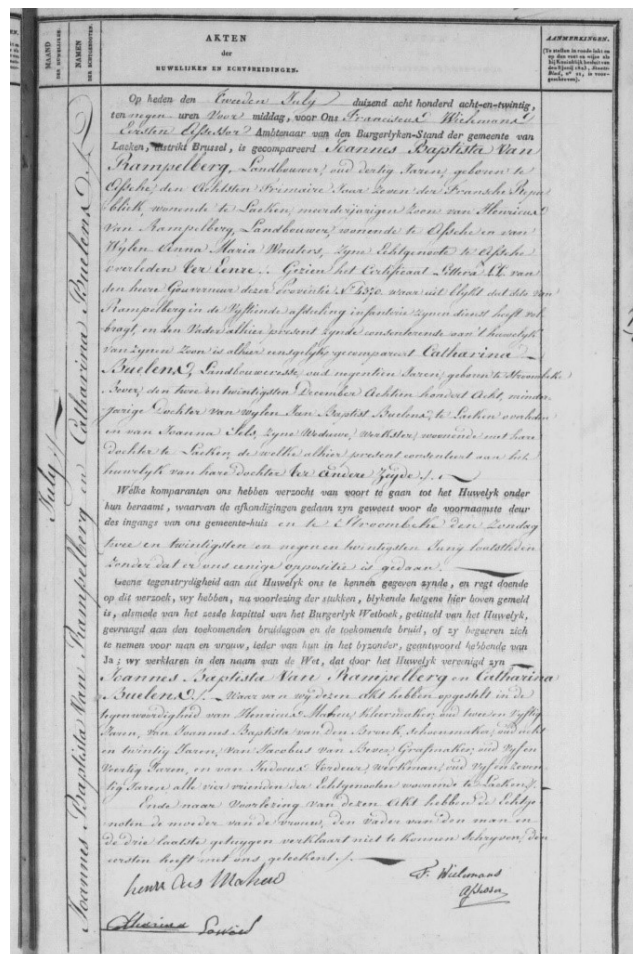 MAAND
DER HUWELIJKEN.
NAMEN
DER ECHTGENOOTEN.
AKTEN
der
HUWELIJKEN EN ECHTSCHEIDINGEN.
AANMERKINGEN.
July //
Joannes Baptista Van Rampelberg en Catharina Buelens ./.
Op heden den Tweeden July duizend acht honderd acht-en-twintig,
ten negen uren Voor middag, voor Ons Franciscus Wielmans
Eersten Assessor Ambtenaar van den Burgerlyken-Stand der gemeente van
Laeken, distrikt Brussel, is gecompareerd Joannes Baptista Van
Rampelberg, Landbouwer, oud dertig Jaren, geboren te
Assche, den Achtsten Frimaire Jaar Zeven der Fransche Repu
bliek, wonende te Laeken, meerderjarigen Zoon van Henricus
Van Rampelberg, Landbouwer, wonende te Assche en van
Wylen Anna Maria Wauters, zyne Echtgenoote te Assche
overleden ter Eenre ./. Gezien het Certificaat Littera van
den heere Gouverneur dezer provintie N.° 4370. waar uit blykt dat dito van
Rampelberg in de Vyftiende afdeeling infanterie zynen dienst heeft vol
bragt, en den Vader alhier present zynde consenteerende aan 't huwelyk
van zynen Zoon is alhier insgelyks gecompareert Catharina
Buelens, Landbouweresse, oud negentien Jaren, geboren te Stroombeke
Bever, den twee en twintigsten December Achtien hondert Acht, minder
jarige Dochter van wylen Jan Baptist Buelens, te Laeken overleden
en van Joanna Sels, zyne Weduwe, Werkster, woonende met hare
dochter te Laeken, de welke alhier present consenteert aan het
huwelyk van hare dochter ter andere Zeyde ./.
Welke komparanten ons hebben verzocht van voort te gaan tot het Huwelyk onder
hun beraemt, waarvan de afkondigingen gedaan zyn geweest voor de voornaamste deur
des ingangs van ons gemeente-huis en te Stroombeke den Zondag
twee en twintigsten en negen en twintigsten Juny laatstleden
zonder dat er ons eenige oppositie is gedaan.
Geene tegenstrydigheid aan dit Huwelyk ons te kennen gegeven zynde, en regt doende
op dit verzoek, wy hebben, na voorlezing der stukken, blykende hetgene hier boven gemeld
is, alsmede van het zesde kapittel van het Burgerlyk Wetboek, getiteld van het Huwelyk,
gevraagd aan den toekomenden bruidegom en de toekomende bruid, of zy begeeren zich
te nemen voor man en vrouw, ieder van hun in het byzonder, geantwoord hebbende van
Ja; wy verklaren in den naam van de Wet, dat door het Huwelyk vereenigd zyn
Joannes Baptista Van Rampelberg en Catharina
Buelens ./. Waar van wy dezen akt hebben opgesteld in de
tegenwoordigheid van Henricus Mahen, oud twee en Vyftig
Jaren, van Joannes Baptista van den Broeck, Schoenmaker, oud acht
en twintig Jaren, van Jacobus van Bever, Grafmaker, oud Vyf en
Veertig Jaren, en van Judocus Tordeur, werkman, oud Vyf en Zeven
tig Jaren alle vier vrienden der Echtgenooten woonende te Laeken ./.
Ende naar Voorlezing van dezen Akt hebben de Echtge
noten de moeder van de vrouwe, den vader van den man en
de drie laatste getuygen verklaart niet te konnen schryven, den
eersten heeft met ons geteekent ./.
F. Wielmans
Assessor